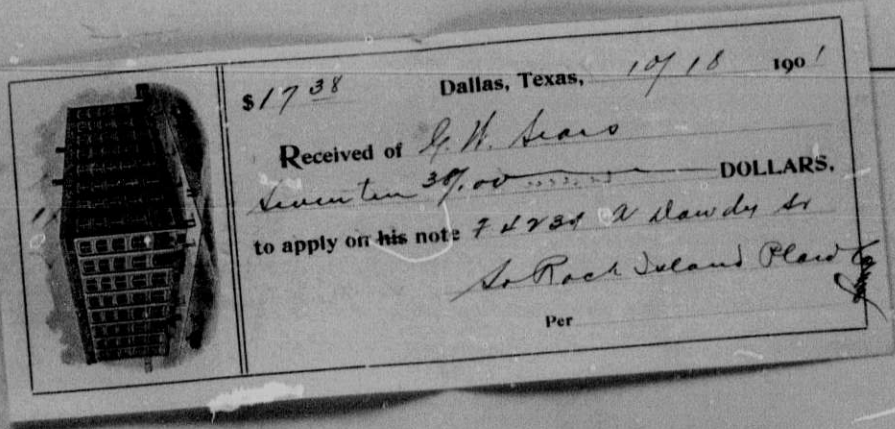 $17 38 Dallas, Texas, 10/18 1901
Received of G. W. Sears
Seventeen 38/00 DOLLARS,
to apply on his note 74234 A Dawdy Sr
So Rock Island Plow Co
Per